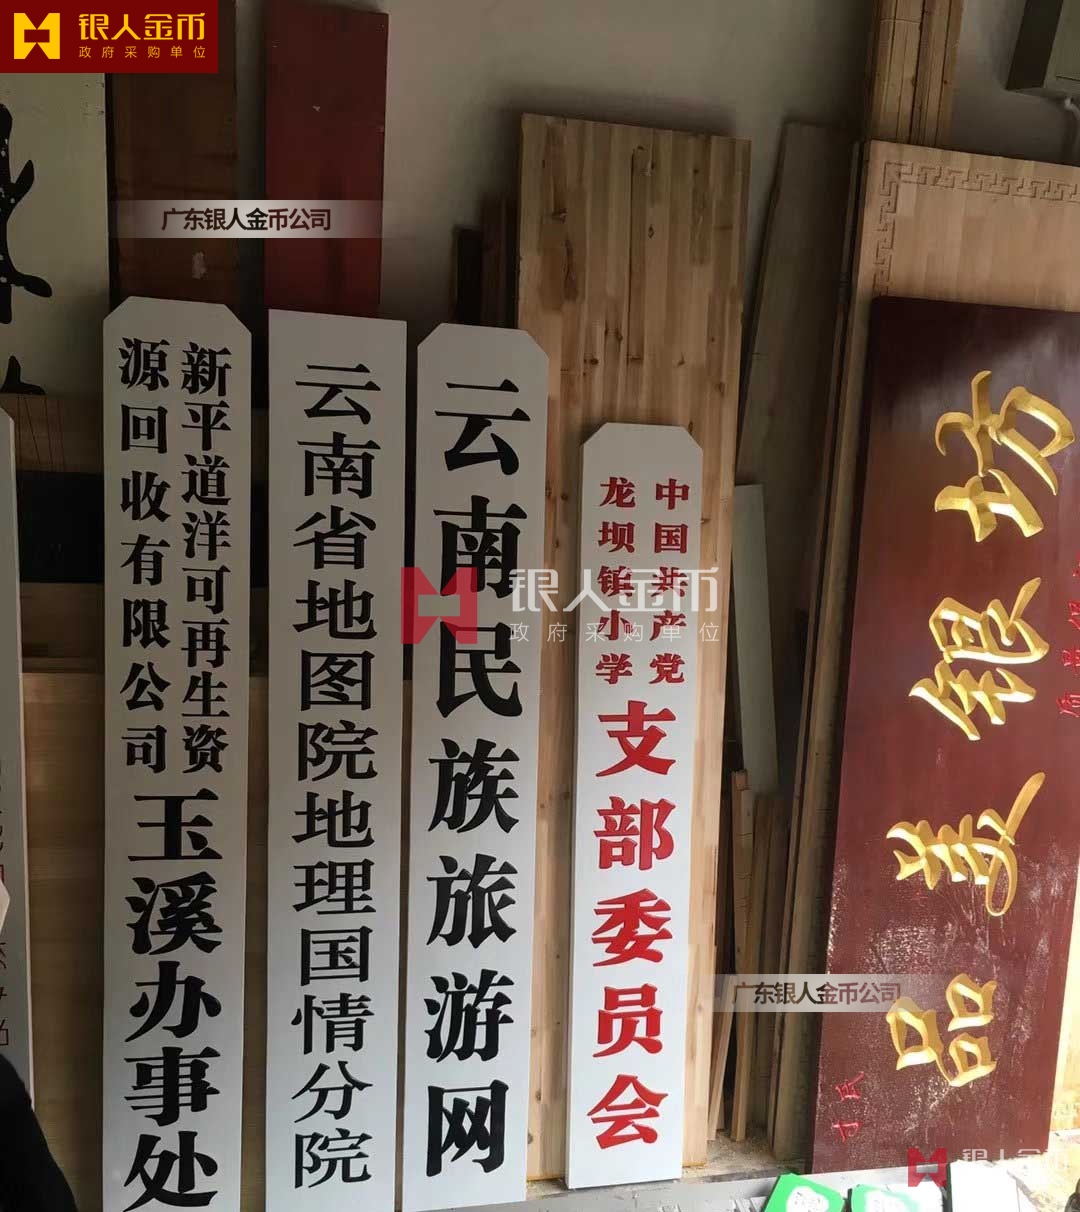 银人金币
政府采购单位
广东银人金币公司
新平道洋可再生资
源回收有限公司
玉溪办事处
云南省地图院地理国情分院
云南民族旅游网
中国共产党
龙坝镇小学
支部委员会
银人金币
政府采购单位
品美银坊
广东银人金币公司
银人金币